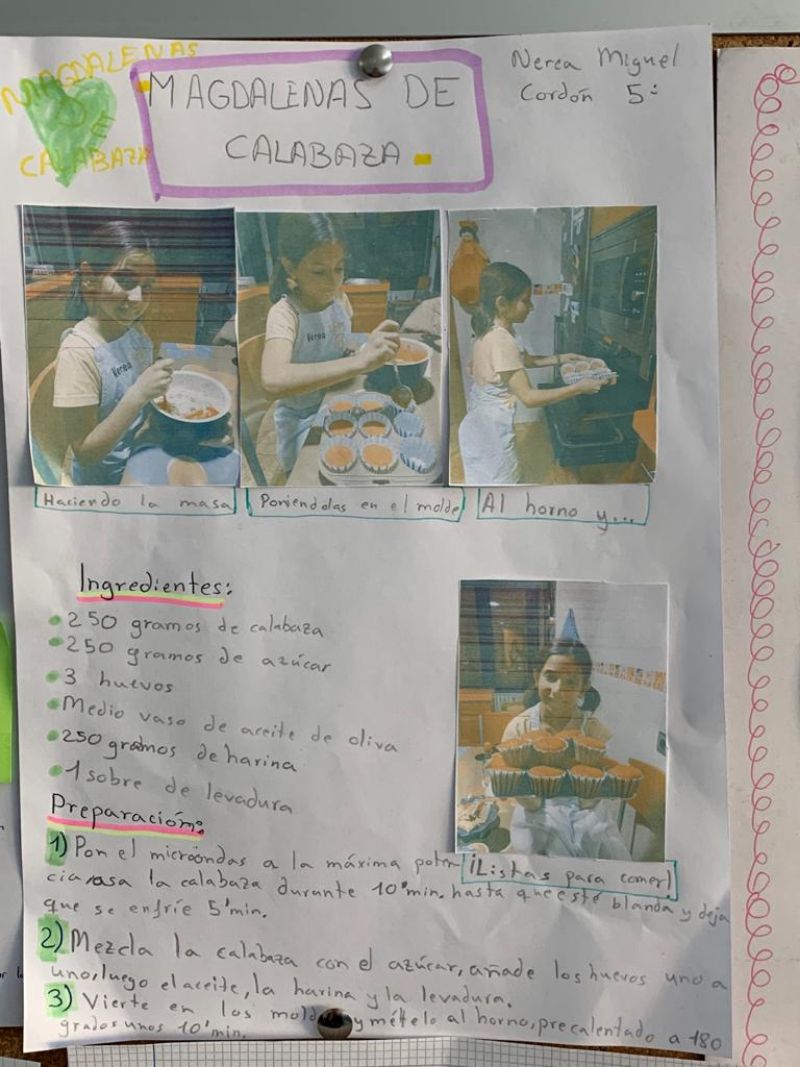 MAGDALENAS
DE
CALABAZA
MAGDALENAS DE
CALABAZA
Nerea Miguel
Cordón 5:
Nerea
Nerea
Haciendo la masa
Poniéndolas en el molde
Al horno y...
Ingredientes:
250 gramos de calabaza
250 gramos de azúcar
3 huevos
Medio vaso de aceite de oliva
250 gramos de harina
1 sobre de levadura
¡Listas para comer!
Preparación:
1) Pon el microondas a la máxima poten
cia, asa la calabaza durante 10'min. hasta que esté blanda y deja
que se enfríe 5'min.
2) Mezcla la calabaza con el azúcar, añade los huevos uno a
uno, luego el aceite, la harina y la levadura.
3) Vierte en los y mételo al horno, precalentado a 180
grados unos 10'min.